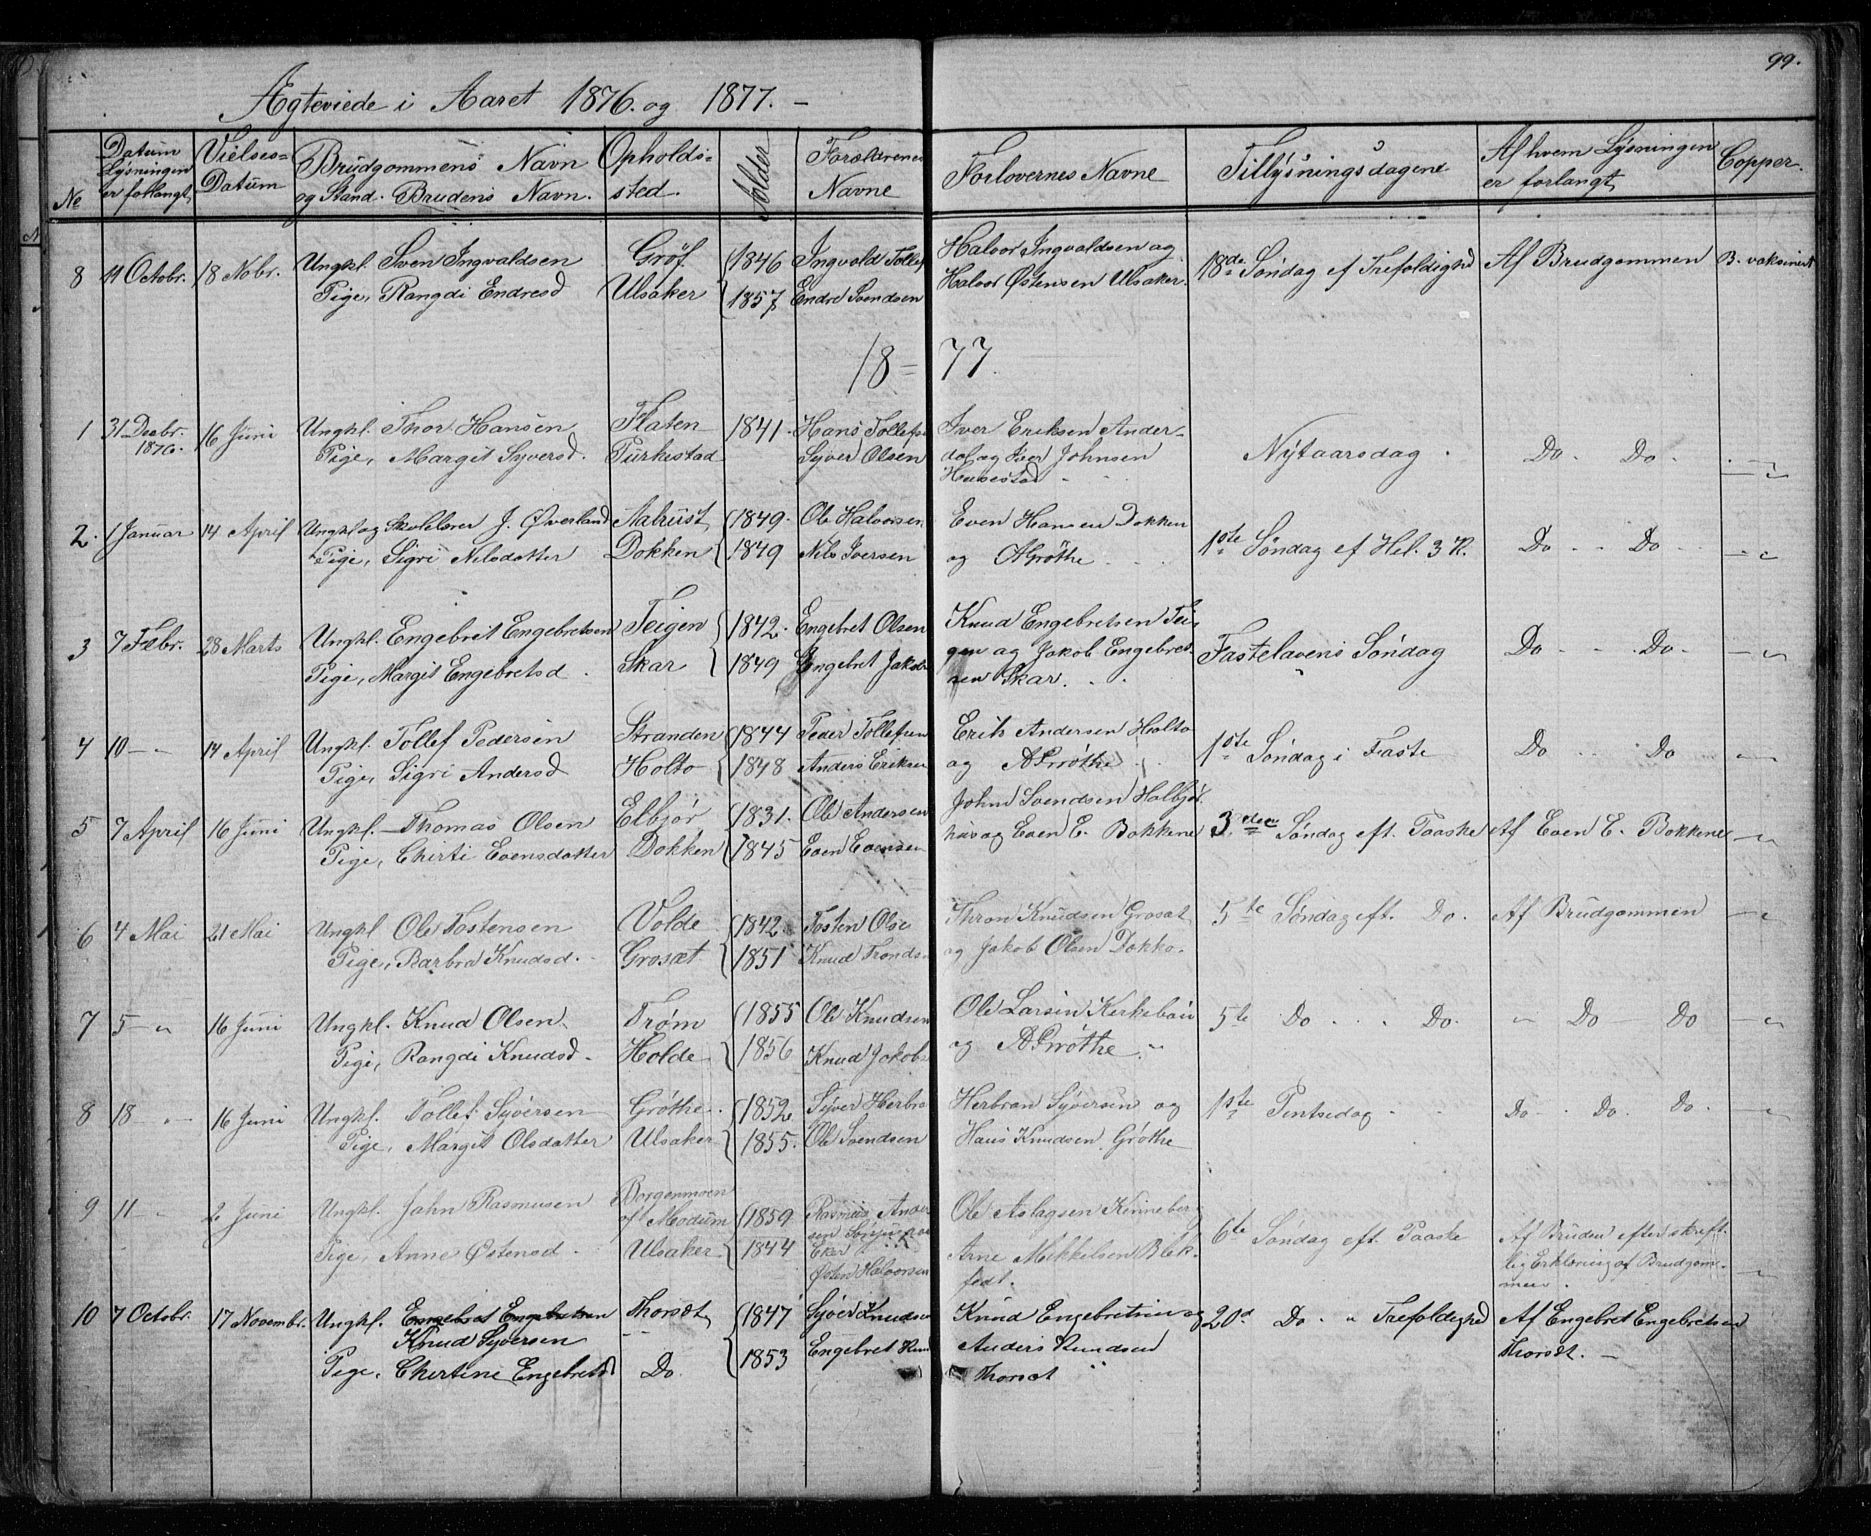 99.
Ægteviede i Aaret 1876. og 1877. –
№ | Datum Lysningen er forlangt | Vielses= Datum | Brudgommens Navn og Stand. Brudens Navn. | Opholds= sted. | Alder | Forældrenes Navne | Forlovernes Navne | Tillysningsdagene | Af hvem Lysningen er forlangt | Copper.
8 | 11 Octobr. | 18 Nobr. | Ungkl. Sven Ingvaldsen | Gröf | 1846 | Ingvold Tollef | Halvor Ingvaldsen og | 18de Søndag ef Trefoldighed | Af Brudgommen | B. vaksineret
Pige, Rangdi Endresd | Ulsaker | 1857 | Endre Svendsen | Halvor Østensen Ulsaker.
18 = 77.
1 | 31 Decbr. 1876. | 16 Juni | Ungkl. Thor Hansen | Flaten | 1841. | Hans Tollefs | Iver Eriksen Ander- | Nytaarsdag . | Do. Do. | –
Pige, Margit Syversd. | Turkestad | Syver Olsen | dal og Iver Johnsen
2. | 1 Januar | 14 April | Ungkl og Skolelærer J. Øverland | Aalrust | 1849. | Ole Halvorsen | Even Hansen Dokken | 1ste Søndag ef Hel. 3 K. | Do Do | – "
Pige, Sigri Nilsdatter | Dokken | 1849 | Nils Iversen | og AGrøthe
3 | 7 Febr. | 28 Marts | Ungkl. Engebret Engebretsen | Teigen | 1842. | Engebret Olsen | Knud Engebretsen Tei- | Fastelavens Søndag | Do Do. | – "
Pige, Margit Engebretsd . | Skar | 1849 | Engebret Jakob | gen og Jakob Engebret-
sen Skar.
4 | 10 – " | 14 April | Ungkl. Tollef Pedersen | Stranden | 1844 | Peder Tollefsen | Erik Andersen Holto | 1ste Søndag i Faste | Do Do | "
Pige, Sigri Andersd | Holto | 1848 | Anders Eriksen | og AGrøthe
5 | 7 April | 16 Juni | Ungkl. – Thomas Olsen | Elbjör | 1831. | Ole Andersen | John Svendsen Halbjør- | 3die Søndag eft. Paaske | Af Even E. Bokkene | "
Pige, Chirti Evensdatter | Dokken | 1845 | Even Evensen | hus og Even E. Bokkene
6 | 4 Mai | 21 Mai | Ungkl Ole Tostensen | Volde | 1842. | Tosten Olse | Thron Knudsen Grosæt | 5te Søndag eft. Do. | Af Brudgommen | – "
Pige, Barbra Knudsd. | Grosæt | 1851 | Knud Tronds | og Jakob Olsen Dokko.
7 | 5 – " | 16 Juni | Ungkl. Knud Olsen. | Trøm | 1855 | Ole Knudsen | Ole Larsen Kerkebøu | 5te Do Do. | " Do Do | – "
Pige, Rangdi Knudsd. | Holde | 1856 | Knud Jakobs | og AGrøthe
8 | 18 " | 16 Juni | Ungkl. Tollef Syversen | Grøthe. | 1852. | Syver Herbra | Herbran Syversen og | 1ste Pintsedag | Do. Do. Do. | – "
Pige, Margit Olsdatter | Ulsaker | 1855. | Ole Svendsen | Hans Knudsen Grøthe
9 | 11 – " | 2 Juni | Ungkl. John Rasmusen | Borgenmoen af Modum | 1859 | Rasmus Ander- sen | Ole Aslagsen Kinneberg | 6te Søndag eft. Paaske | Af Bruden efter skrift-
Pige, Anne Østensd. | Ulsaker. | 1844 | Eker Østen Halvorsen | Arne Mikkelsen Blek- | lig Erklæring af Brudgom-
fedt. | men. | "
10 | 7 Octobr. | 17 Novembr. | Ungkl. Engebret Engebretsen | Thorsæt | 1847 | Syver Knudsen | Knud Engebretsen og | 20d Do. " Trefoldighed | Af Engebret Engebretsen
Knud Syversen | Anders Knudsen | Thorsæt. –
Pige, Chirtine Engebretsd | Do | 1853 | Engebret Knu | Thorsæt